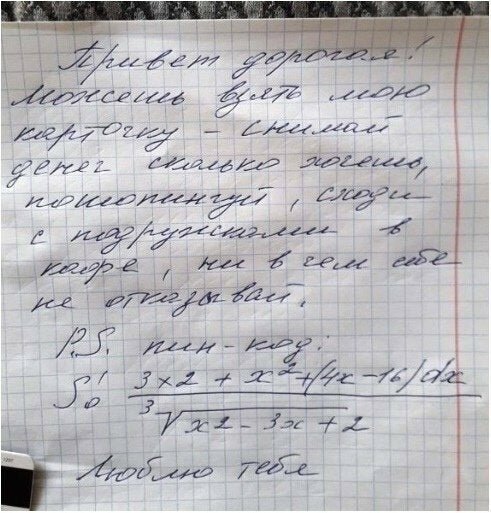 Привет дорогая!
Можешь взять мою
карточку – снимай
денег сколько хочешь,
пошопингуй, сходи
с подружками в
кафе, ни в чем себе
не отказывай.
P.S. пин-код:
∫₀¹ (3×2 + x² + (4x – 16) dx) / ∛(x2 – 3x + 2)
Люблю тебя